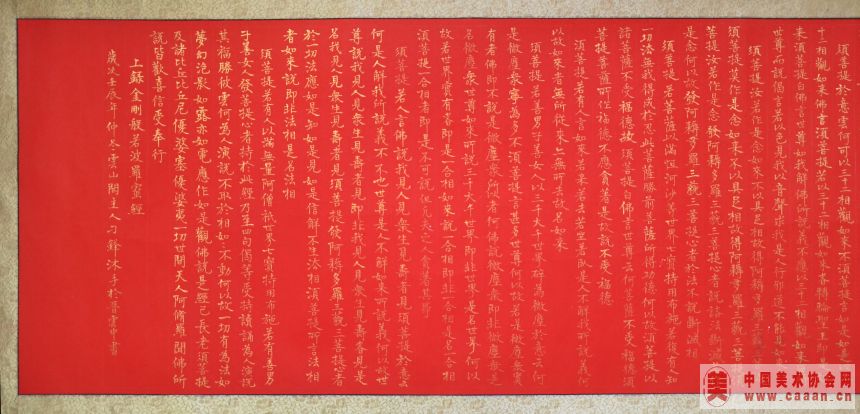 十二相觀如來不須菩提言如是如是
十二相觀如來佛言須菩提若以三十二相觀如來者轉輪聖王
來須菩提白佛言世尊如我解佛所說義不應以三十二相觀如來
世尊而說偈言若以色見我以音聲求我是人行邪道不能見如
須菩提汝若作是念如來不以具足相故得阿耨多羅三藐三菩
須菩提莫作是念如來不以具足相故得阿耨多羅三藐三菩
菩提汝若作是念發阿耨多羅三藐三菩提心者說諸法斷
是念何以故發阿耨多羅三藐三菩提心者於法不說斷滅相
須菩提若菩薩以滿恒河沙等世界七寶持用布施若復有人知
一切法無我得成於忍此菩薩勝前菩薩所得功德何以故須菩提以
諸菩薩不受福德故須菩提白佛言世尊云何菩薩不受福德須
菩提菩薩所作福德不應貪著是故說不受福德
須菩提若有人言如來若來若去若坐若臥是人不解我所說義何
以故如來者無所從來亦無所去故名如來
須菩提若善男子善女人以三千大千世界碎為微塵於意云何
是微塵眾寧為多不須菩提言甚多世尊何以故若是微塵眾實
有者佛即不說是微塵眾所以者何佛說微塵眾即非微塵眾是
名微塵眾世尊如來所說三千大千世界即非世界是名世界何以
故若世界實有者即是一合相如來說一合相即非一合相是名一合相
須菩提一合相者即是不可說但凡夫之人貪著其事
須菩提若人言佛說我見人見眾生見壽者見須菩提於意云
何是人解我所說義不不也世尊是人不解如來所說義何以故世
尊說我見人見眾生見壽者見即非我見人見眾生見壽者見是
名我見人見眾生見壽者見須菩提發阿耨多羅三藐三菩提心者
於一切法應如是知如是見如是信解不生法相須菩提所言法相
者如來說即非法相是名法相
須菩提若有人以滿無量阿僧祇世界七寶持用布施若有善男
子善女人發菩提心者持於此經乃至四句偈等受持讀誦為人演說
其福勝彼云何為人演說不取於相如如不動何以故一切有為法如
夢幻泡影如露亦如電應作如是觀佛說是經已長老須菩提
及諸比丘比丘尼優婆塞優婆夷一切世間天人阿脩羅聞佛所
說皆歡喜信受奉行
上錄金剛般若波羅蜜經
歲次壬辰年仲冬雲山閣主人刁鋒沐手於書
中国美术协会网
www.caaan.cn